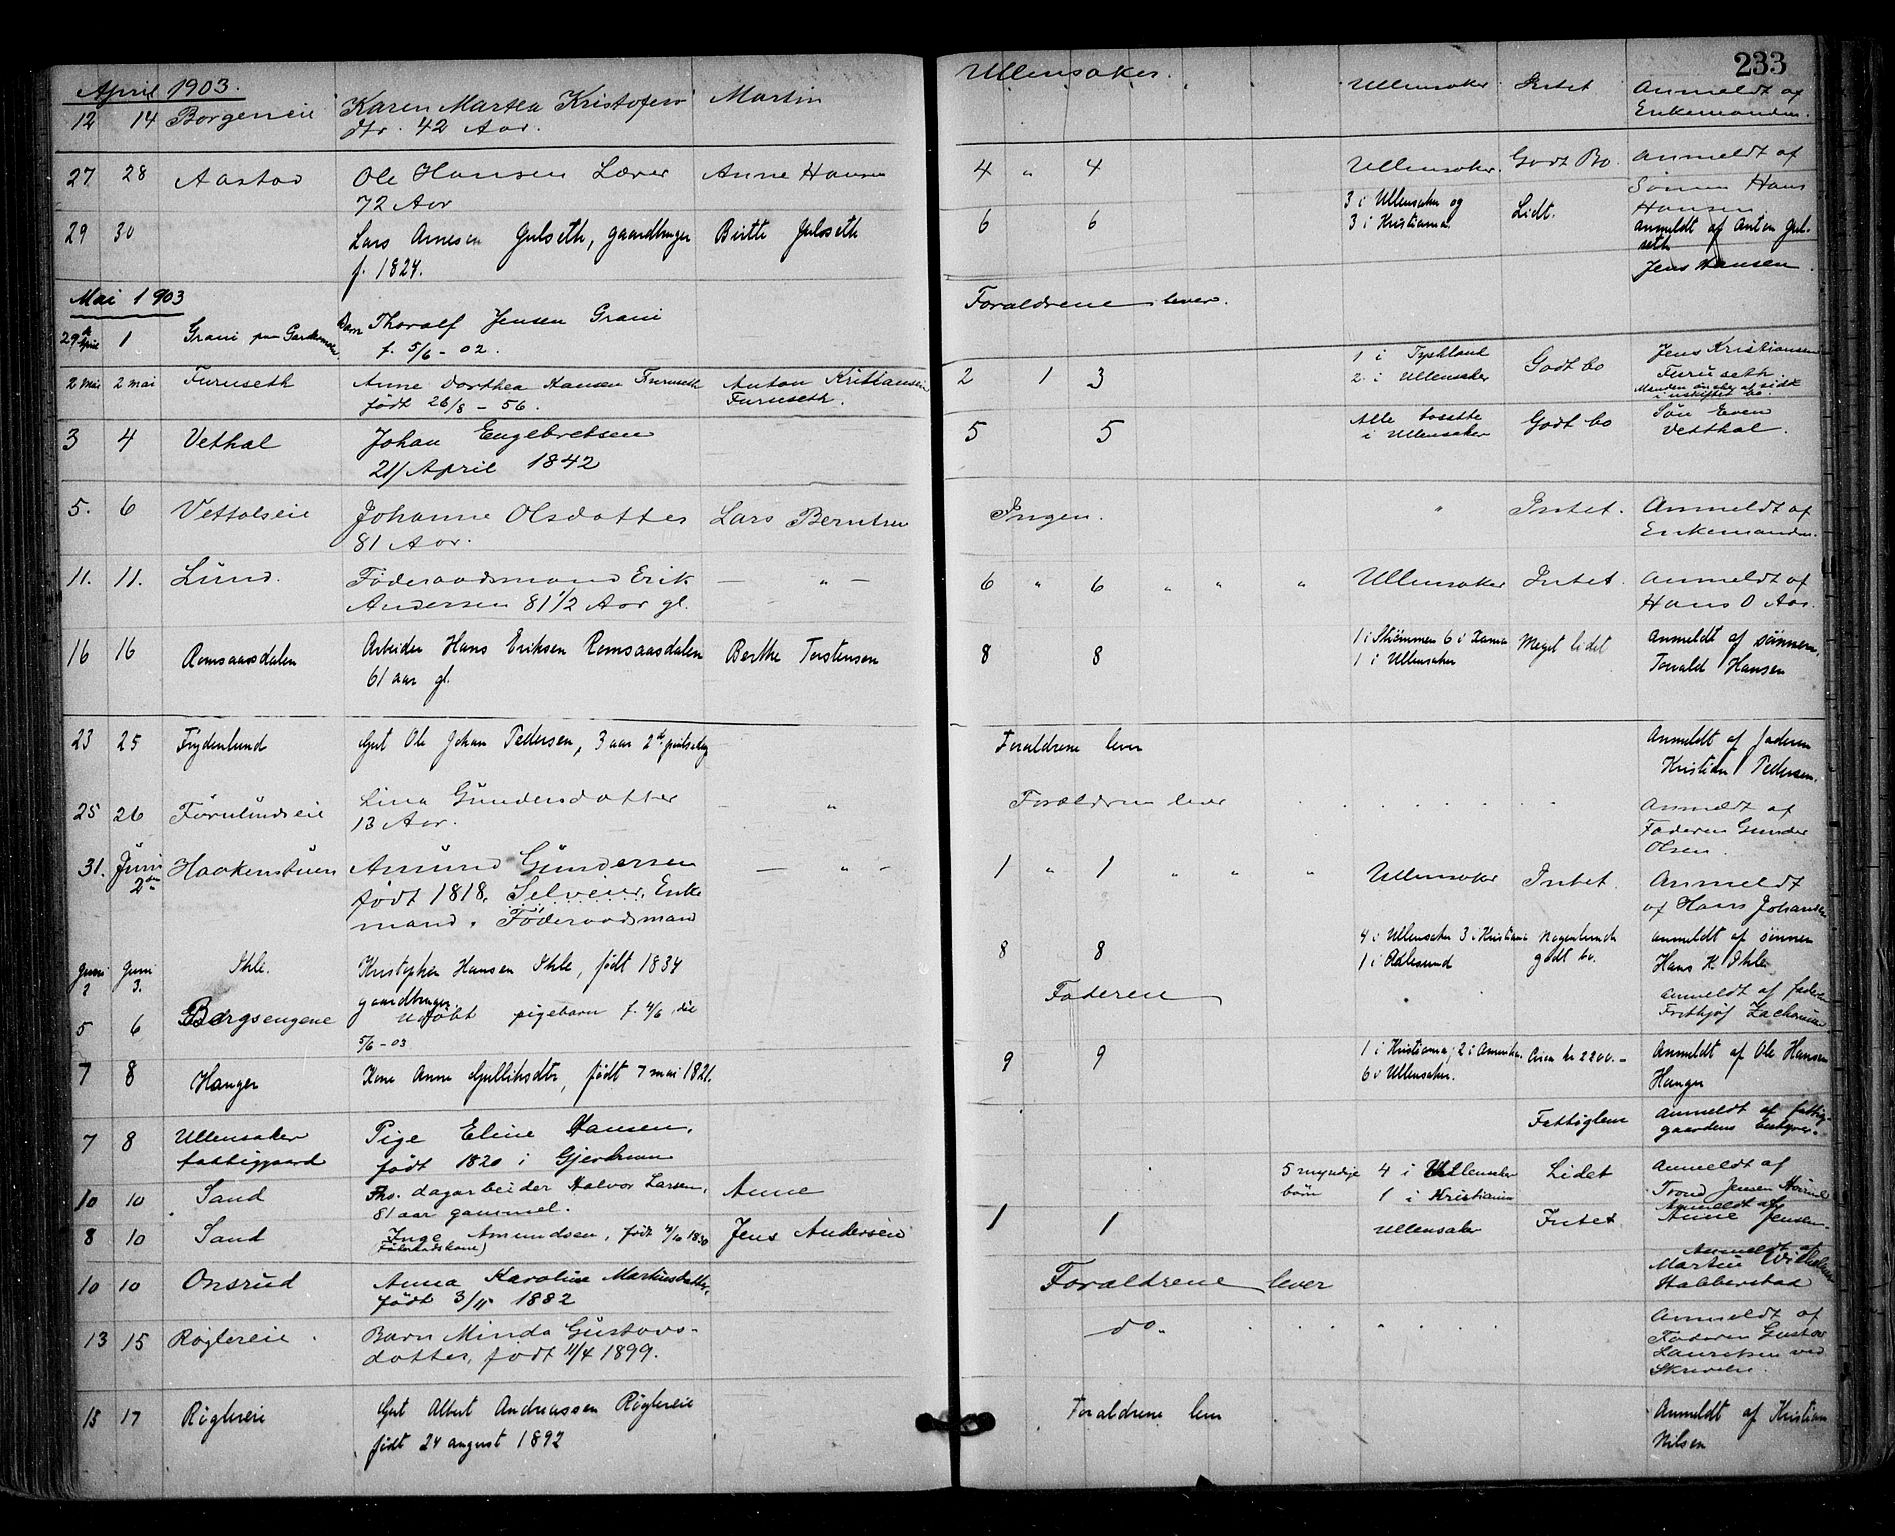 April 1903. Ullensaker. 233
12 14 Borgeneie Karen Martea Kristofers Martin Ullensaker Intet Anmeldt af
dtr. 42 Aar. Enkemanden.
27 28 Aastad Ole Hansen Lærer Anne Hansen 4 " 4 Ullensaker. Godt Bo. Anmeldt af
72 Aar Sønnen Hans
Hansen
29 30 Lars Arnesen Gulseth, gaardbruger Birtte Julseth 6 6 3 i Ullensaker og Lidt. anmeldt af Anton Jul-
f. 1824. 3 i Kristiania. seth
Mai 1903 Jens Hansen.
29de April 1 Grani paa Gardemoen Barn Thoralf Jensen Grani Forældrene lever.
f. 5/6 - 02.
2 mai 2 mai Furuseth Anne Dorthea Hansen Furuseth Anton Kristiansen 2 1 3 1 i Tyskland Godt bo Jens Kristiansen
født 26/8 - 56. Furuseth. 2 i Ullensaker Furuseth.
Manden ønsker at sidde
i uskiftet bo.
3 4 Vethal Johan Engebretsen 5 5 Alle bosatte Godt bo Søn Even
21/ April 1842 i Ullensaker Vetthal.
5. 6 Vettalseie Johanne Olsdatter Lars Berntsen Ingen. " Intet. Anmeldt af
81 Aar. Enkemanden.
11. 11. Lund. Føderaadsmand Erik — " — 6 " 6 " " " Ullensaker Intet. Anmeldt af
Andersen 81 1/2 Aar gl. Hans O Aas.
16 16 Romsaasdalen Arbeider Hans Eriksen Romsaasdalen Berthe Torstensen 8 8 1 i Strømmen 6 i Meget lidet Anmeldt af sønnen,
61 aar gl. 1 i Ullensaker Torvald Hansen
23 25 Frydenlund Gut Ole Johan Pedersen, 3 aar Forældrene lever Anmeldt af faderen
Kristian Pedersen.
25 26 Førnlundseie Lina Gundersdatter " Forældrene lever Anmeldt af
13 Aar. Faderen Gunder
Olsen.
31. Juni Haakenstuen Amund Gundersen — " — 1 " 1 " " " Ullensaker Intet. Anmeldt
2den født 1818. Selveier, Enke af Hans Johansen
mand. Føderaadsmand
Juni Juni Ihle. Kristopher Hansen Ihle, født 1834 8 8 4 i Ullensaker 3 i Kristiania Nogenlunde anmeldt af sønnen
2 3. gaardbruger 1 i Aalesund godt bo. Hans K. Ihle
5 6 Bergsengene Udøbt pigebarn f. 4/6, død Faderen anmeldt af faderen
5/6 - 03 Frithjof Zachariassen
7 8 Hanger Kone Anne Gulliksdtr, født 7 mai 1821. 9 9 1 i Kristiania, 2 i Amerika. Circa kr 2200.- Anmeldt af Ole Hansen
6 i Ullensaker. Hanger
7 8 Ullensaker Pige Eline Hansen, Fattiglem anmeldt af fattig-
fattiggaard født 1820 i Gjerdrum gaardens Bestyrer.
10 10 Sand Fhv. dagarbeider Halvor Larsen, Anne 5 myndige 4 i Ullensaker Lidet Anmeldt af
81 aar gammel. børn 1 i Kristiania Trond Jensen
8 10 Sand Inge Amundsen, født 4/10 1830 Jens Andersen 1 1 Ullensaker Intet. Anmeldt af
(Føderaadskone) Anne Jensen
10 10 Onsrud Anna Karoline Martinsdatter, Forældrene lever Anmeldt af
født 3/11 1882 Martin Wilhelmsen
Habberstad
13 15 Røglereie Barn Minda Gustavs- do. Anmeldt af
datter, født 11/4 1899. Faderen Gustav
Lauritsen ved
Skrivelse.
15 17 Røglereie Gut Albert Andreassen Røglereie Forældrene lever Anmeldt af Kristian
født 24 august 1892 Nilsen